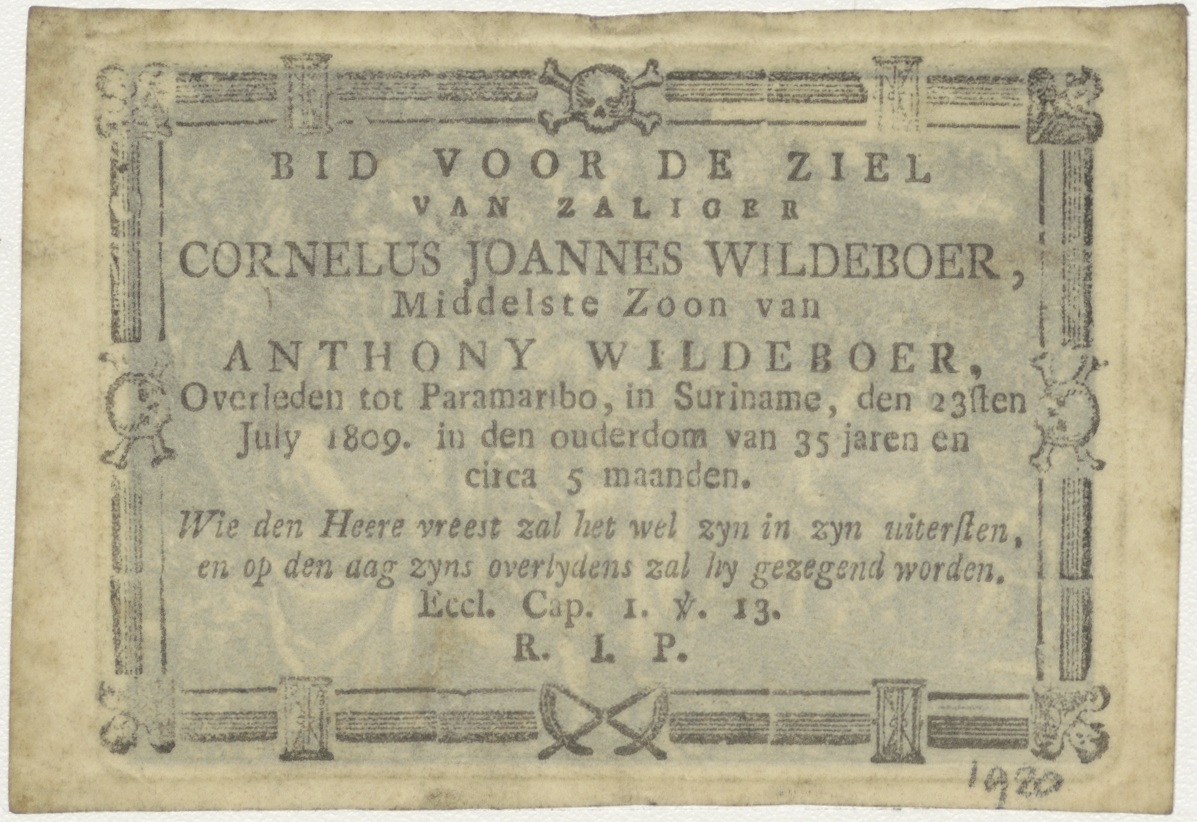 BID VOOR DE ZIEL
VAN ZALIGER
CORNELUS JOANNES WILDEBOER,
Middelste Zoon van
ANTHONY WILDEBOER,
Overleden tot Paramaribo, in Suriname, den 23ſten
July 1809. in den ouderdom van 35 jaren en
circa 5 maanden.
Wie den Heere vreest zal het wel zyn in zyn uiterſten,
en op den dag zyns overlydens zal hy gezegend worden.
Eccl. Cap. 1. ℣. 13.
R. I. P.
1920